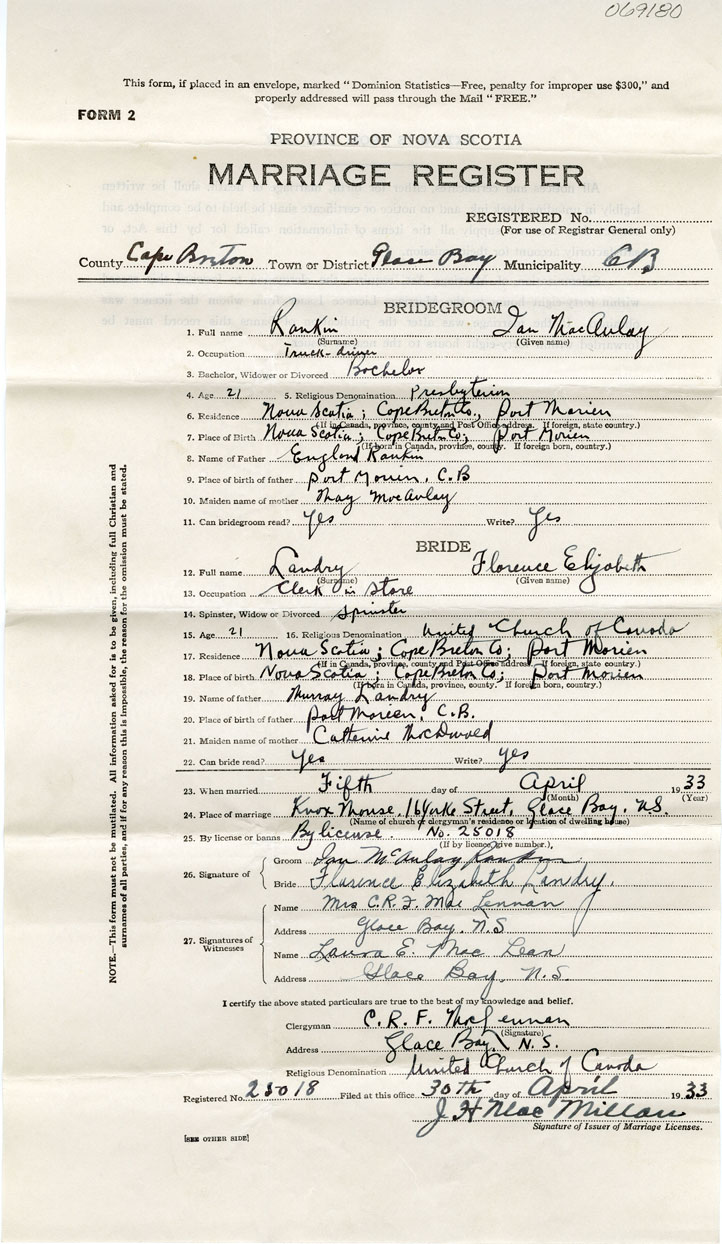 069180
This form, if placed in an envelope, marked "Dominion Statistics—Free, penalty for improper use $300," and
properly addressed will pass through the Mail "FREE."
FORM 2
PROVINCE OF NOVA SCOTIA
MARRIAGE REGISTER
REGISTERED No.
(For use of Registrar General only)
County Cape Breton Town or District Glace Bay Municipality CB
BRIDEGROOM
1. Full name Rankin Ian MacAulay
(Surname) (Given name)
2. Occupation Truck-driver
3. Bachelor, Widower or Divorced Bachelor
4. Age 21 5. Religious Denomination Presbyterian
6. Residence Nova Scotia; Cape Breton Co., Port Morien
(If in Canada, province, county and Post Office address. If foreign, state country.)
7. Place of Birth Nova Scotia; Cape Breton Co; Port Morien
(If born in Canada, province, county. If foreign born, country.)
8. Name of Father England Rankin
9. Place of birth of father Port Morien, C.B
10. Maiden name of mother May MacAulay
11. Can bridegroom read? Yes Write? Yes
BRIDE
12. Full name Landry Florence Elizabeth
(Surname) (Given name)
13. Occupation Clerk in Store
14. Spinster, Widow or Divorced Spinster
15. Age 21 16. Religious Denomination United Church of Canada
17. Residence Nova Scotia; Cape Breton Co; Port Morien
(If in Canada, province, county and Post Office address. If foreign, state country.)
18. Place of birth Nova Scotia; Cape Breton Co; Port Morien
(If born in Canada, province, county. If foreign born, country.)
19. Name of father Murray Landry
20. Place of birth of father Port Morien, C.B.
21. Maiden name of mother Catherine MacDonald
22. Can bride read? Yes Write? Yes
23. When married Fifth day of April 1933
(Month) (Year)
24. Place of marriage Knox Manse, 16 Yorke Street, Glace Bay, N.S.
(Name of church or clergyman's residence or location of dwelling house)
25. By license or banns By license. No. 25018
(If by licence, give number.)
26. Signature of
Groom Ian McAulay Rankin
Bride Florence Elizabeth Landry.
27. Signatures of Witnesses
Name Mrs C.R.F. MacLennan
Address Glace Bay, N.S
Name Laura E. MacLean
Address Glace Bay, N.S.
I certify the above stated particulars are true to the best of my knowledge and belief.
Clergyman C. R. F. MacLennan
(Signature)
Address Glace Bay, N.S.
Religious Denomination United Church of Canada
Registered No. 25018 Filed at this office 30th day of April 1933
J H MacMillan
Signature of Issuer of Marriage Licenses.
[SEE OTHER SIDE]
NOTE.—This form must not be mutilated. All information asked for is to be given, including full Christian and
surnames of all parties, and if for any reason this is impossible, the reason for the omission must be stated.